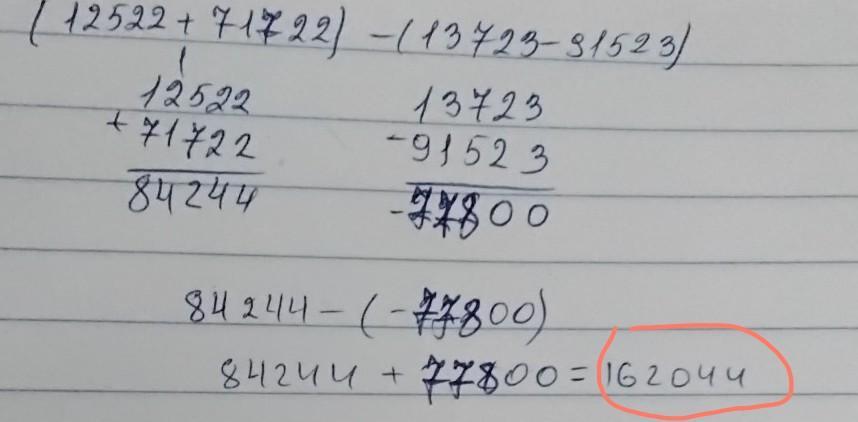 (12522 + 71722) - (13723 - 91523)
1
12522
+ 71722
84244
13723
- 91523
- 77800
84244 - (-77800)
84244 + 77800 = 162044